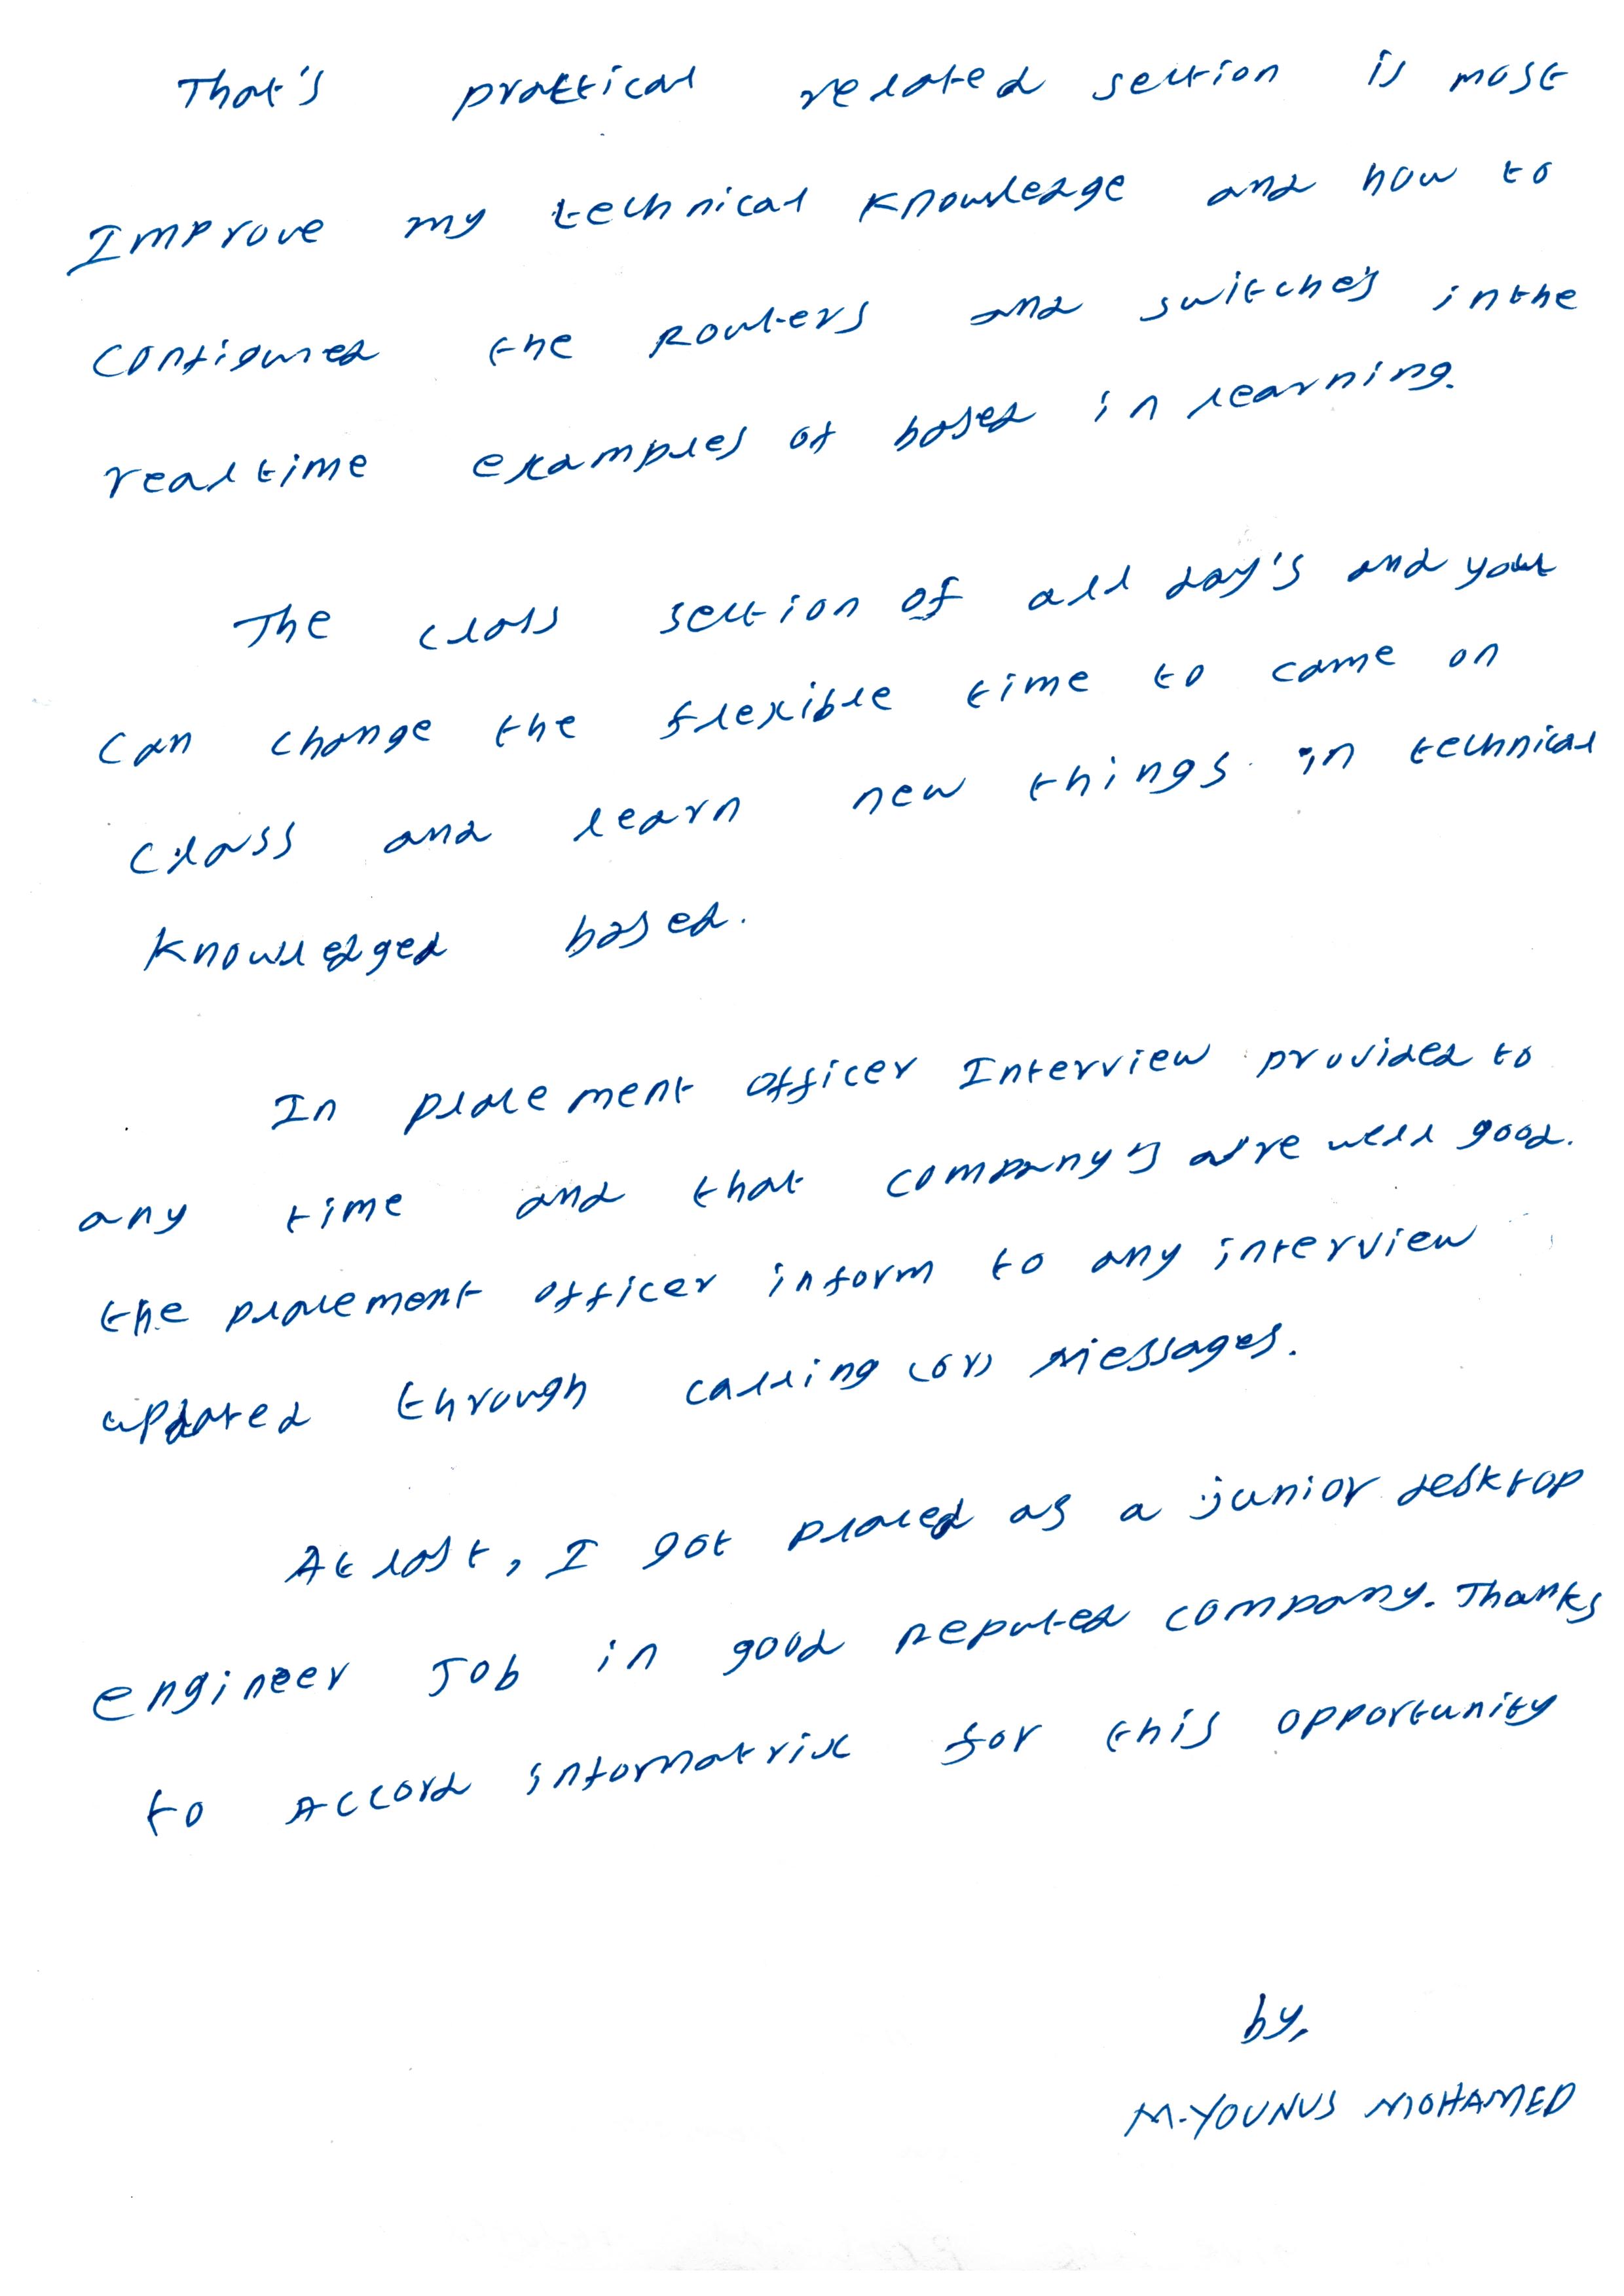 That's practical related section is most
Improve my technical knowledge and how to
configured the Routers and switche's inthe
realtime examples of based in learning.
The class section of all day's and your
can change the flexible time to came on
class and learn new things in technical
knowledged based.
In placement officer Interview provided to
any time and that company's are well good.
the placement officer inform to any interview
updated through calling (or) Messages.
At last, I got placed as a junior desktop
engineer Job in good reputed company. Thanks
to Accord informatrix for this opportunity
by,
M.YOUNUS MOHAMED